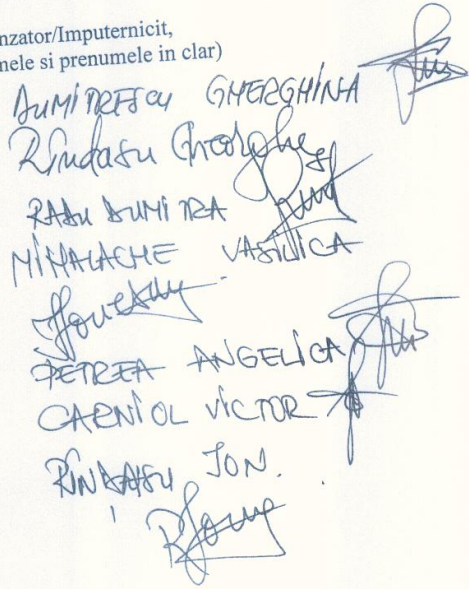 nzator/Imputernicit,
nele si prenumele in clar)
DUMITRESCU GHERGHINA
Rîndasu Gheorghe
RADU DUMITRA
MIHALACHE VASILICA
PETREA ANGELICA
CARNIOL VICTOR
RÎNDASU ION.